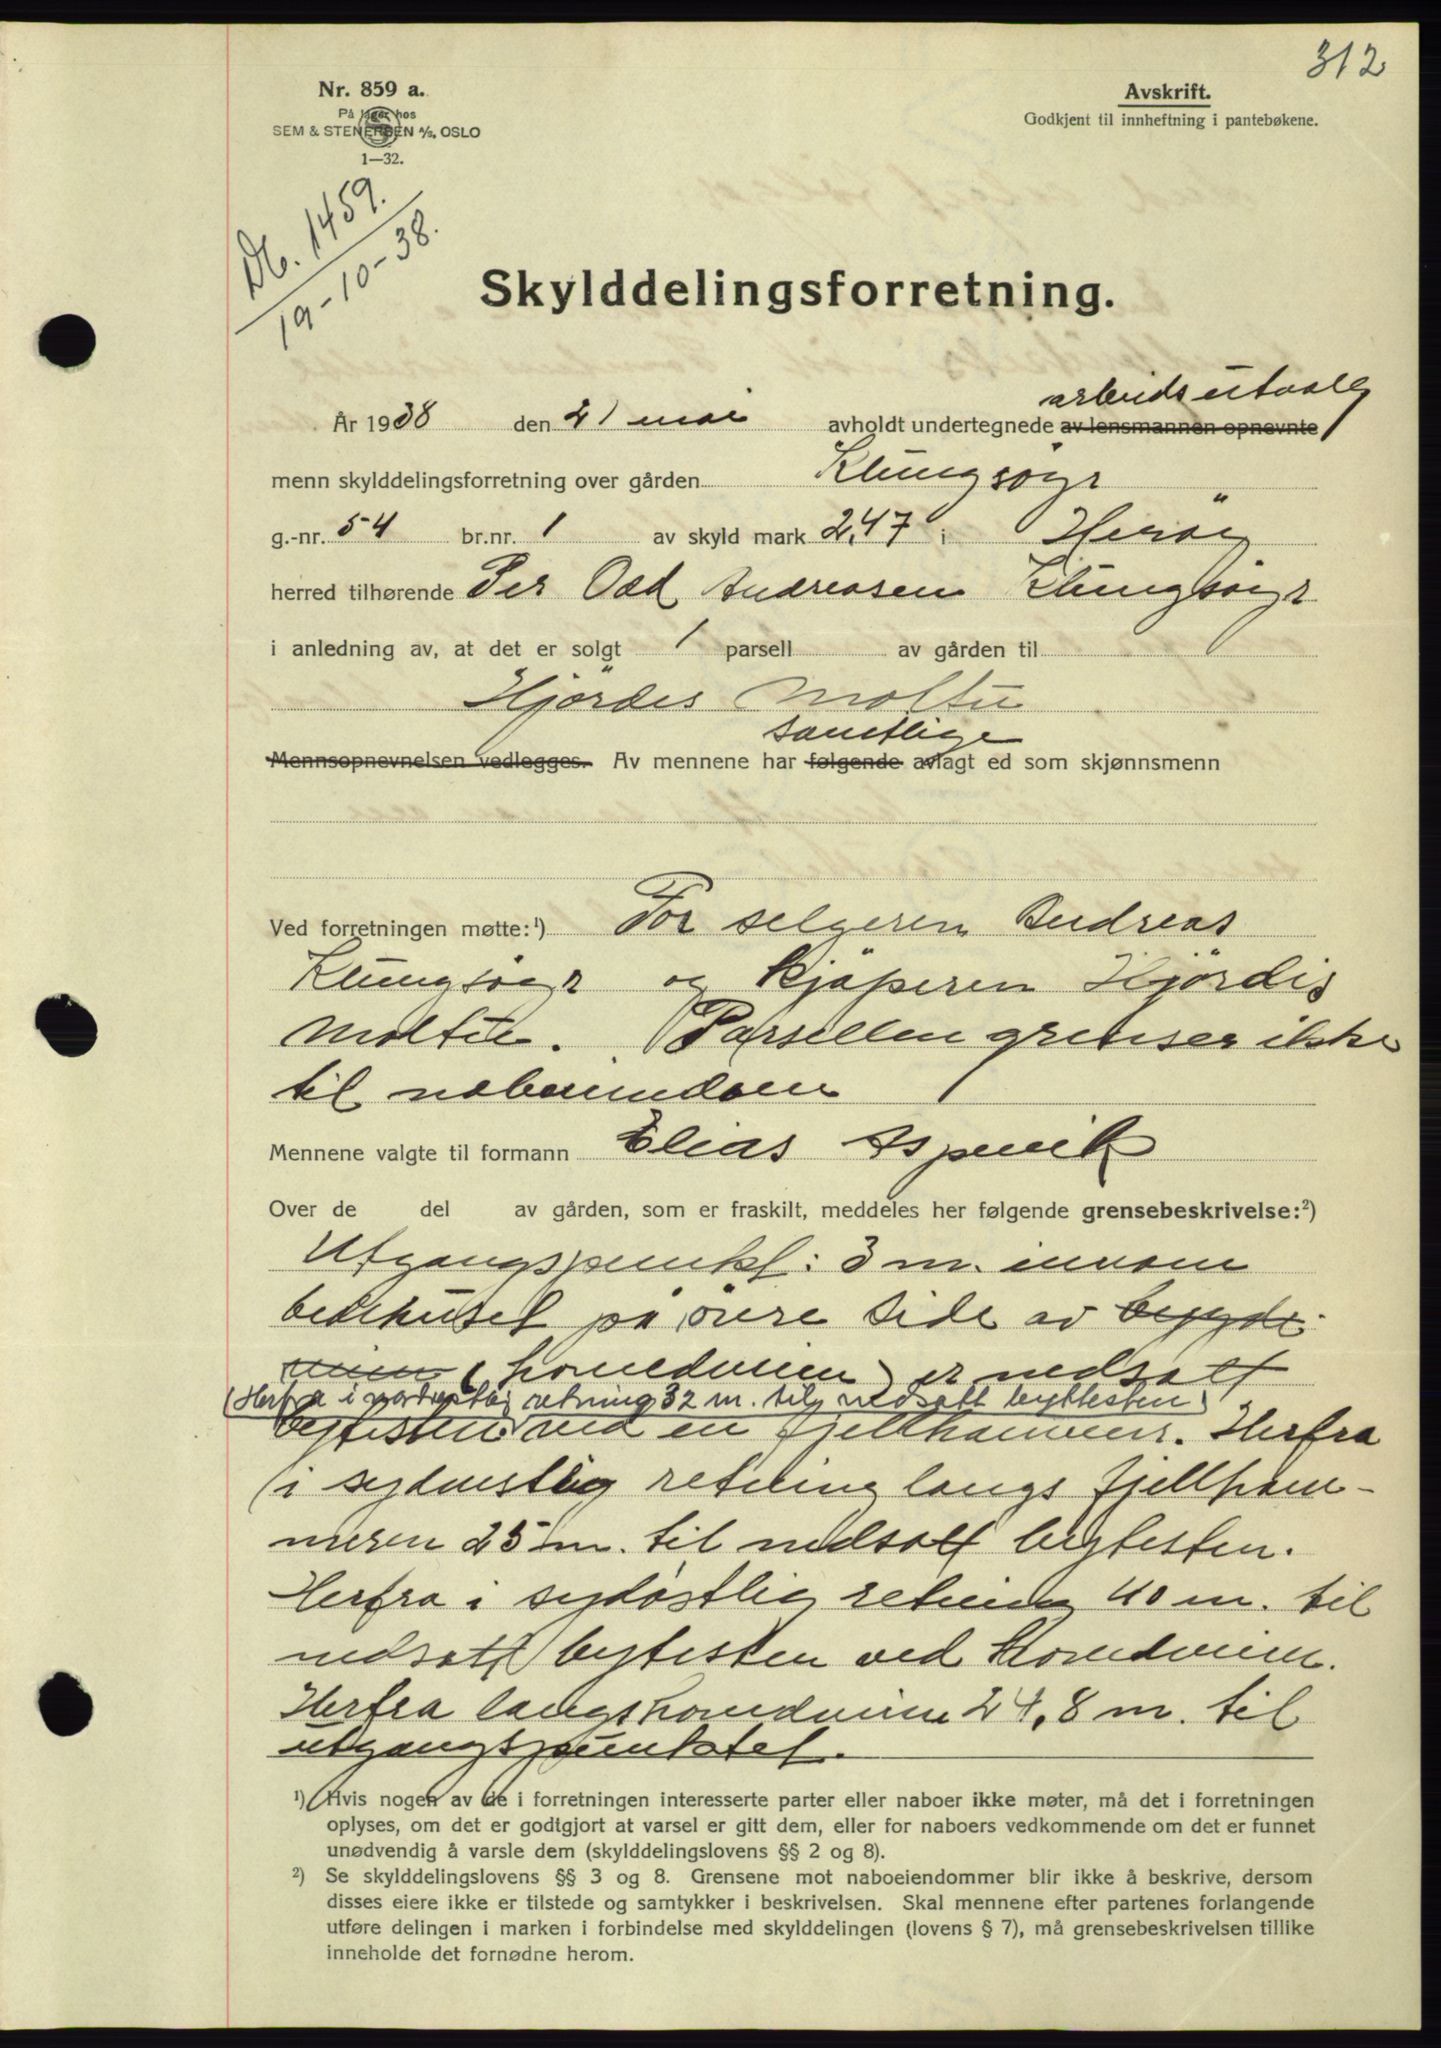 312
Nr. 859 a.
På lager hos
SEM & STENERSEN A/S, OSLO
1—32.
Avskrift.
Godkjent til innheftning i pantebøkene.
Db. 1459.
19-10-38.
Skylddelingsforretning.
arbeidsutvalg
År 1938 den 21 mai avholdt undertegnede av lensmannen opnevnte
menn skylddelingsforretning over gården Klungsöyr
g.-nr. 54 br.nr. 1 av skyld mark 2,47 i Heröy
herred tilhørende Per Odd Andreasen Klungsöyr
i anledning av, at det er solgt 1 parsell av gården til
Hjördis Moltu
samtlige
Mennsopnevnelsen vedlegges. Av mennene har følgende avlagt ed som skjønnsmenn
Ved forretningen møtte:¹) For selgeren Andreas
Klungsöyr og kjöperen Hjördis
Moltu. Parsellen grenser ikke
til naboeiendom
Mennene valgte til formann Elias Aspevik
Over de del av gården, som er fraskilt, meddeles her følgende grensebeskrivelse:²)
Utgangspunkt: 3 m. innom
bedehuset på övre side av bygde-
veien (hovedveien) er nedsatt
(Herfra i nordvestlig retning 32 m. til nedsatt byttesten)
bytesten ved en fjellhammer. Herfra
i sydvestlig retning langs fjellham-
meren 25 m. til nedsatt bytesten.
Herfra i sydöstlig retning 40 m. til
nedsatt bytesten ved hovedveien.
Herfra langs hovedveien 24,8 m. til
utgangspunktet.
¹) Hvis nogen av de i forretningen interesserte parter eller naboer ikke møter, må det i forretningen
oplyses, om det er godtgjort at varsel er gitt dem, eller for naboers vedkommende om det er funnet
unødvendig å varsle dem (skylddelingslovens §§ 2 og 8).
²) Se skylddelingslovens §§ 3 og 8. Grensene mot naboeiendommer blir ikke å beskrive, dersom
disses eiere ikke er tilstede og samtykker i beskrivelsen. Skal mennene efter partenes forlangende
utføre delingen i marken i forbindelse med skylddelingen (lovens § 7), må grensebeskrivelsen tillike
inneholde det fornødne herom.